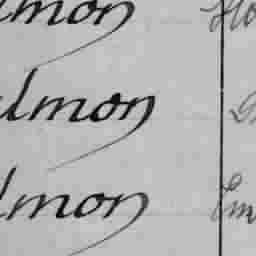 lmon Ho
lmon G
lmon Em